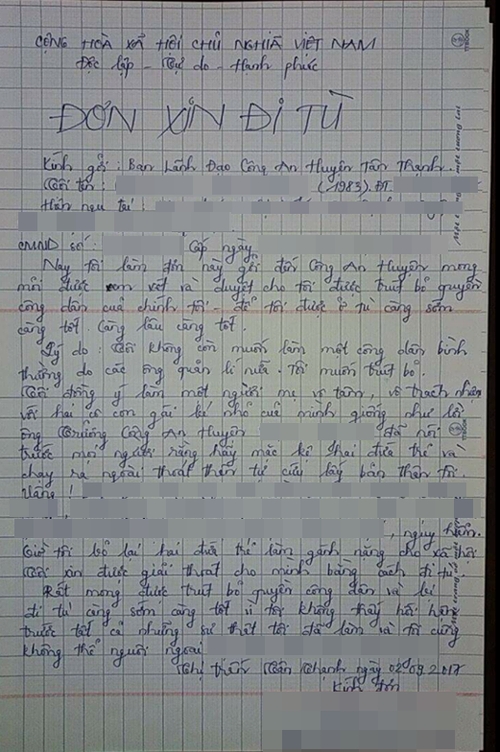 CỘNG HOÀ XÃ HỘI CHỦ NGHĨA VIỆT NAM
Độc lập - Tự do - Hạnh phúc
ĐƠN XIN ĐI TÙ
Kính gởi : Ban Lãnh Đạo Công An Huyện Tân Thạnh.
Tôi tên : (1983). ĐT
Hiện ngụ tại :
CMND số : Cấp ngày
Nay tôi làm đơn này gởi đến Công An Huyện mong
mỏi được xem xét và duyệt cho tôi được trút bỏ quyền
công dân của chính tôi - để tôi được ở tù càng sớm
càng tốt. Càng lâu càng tốt.
Lý do : Tôi không còn muốn làm một công dân bình
thường do các ông quản lí nữa. Tôi muốn trút bỏ.
Tôi đồng ý làm một người mẹ vô tâm, vô trách nhiệm
với hai cô con gái bé nhỏ của mình giống như lời
ông Trưởng Công An Huyện đã nói
trước mọi người rằng hãy mặc kệ hai đứa trẻ và
chạy ra ngoài thoát thân tự cứu lấy bản thân tôi.
Vâng !
, nguy hiểm.
Giờ tôi bỏ lại hai đứa trẻ làm gánh nặng cho xã hội
Tôi xin được giải thoát cho mình bằng cách đi tù
Rất mong được trút bỏ quyền công dân và
đi tù càng sớm càng tốt vì tôi không thấy hối hận
trước tất cả những sự thật tôi đã làm và tôi cũng
không thể nguôi ngoai
Thị trấn Tân Thạnh ngày 02.09.2017
Kính đơn